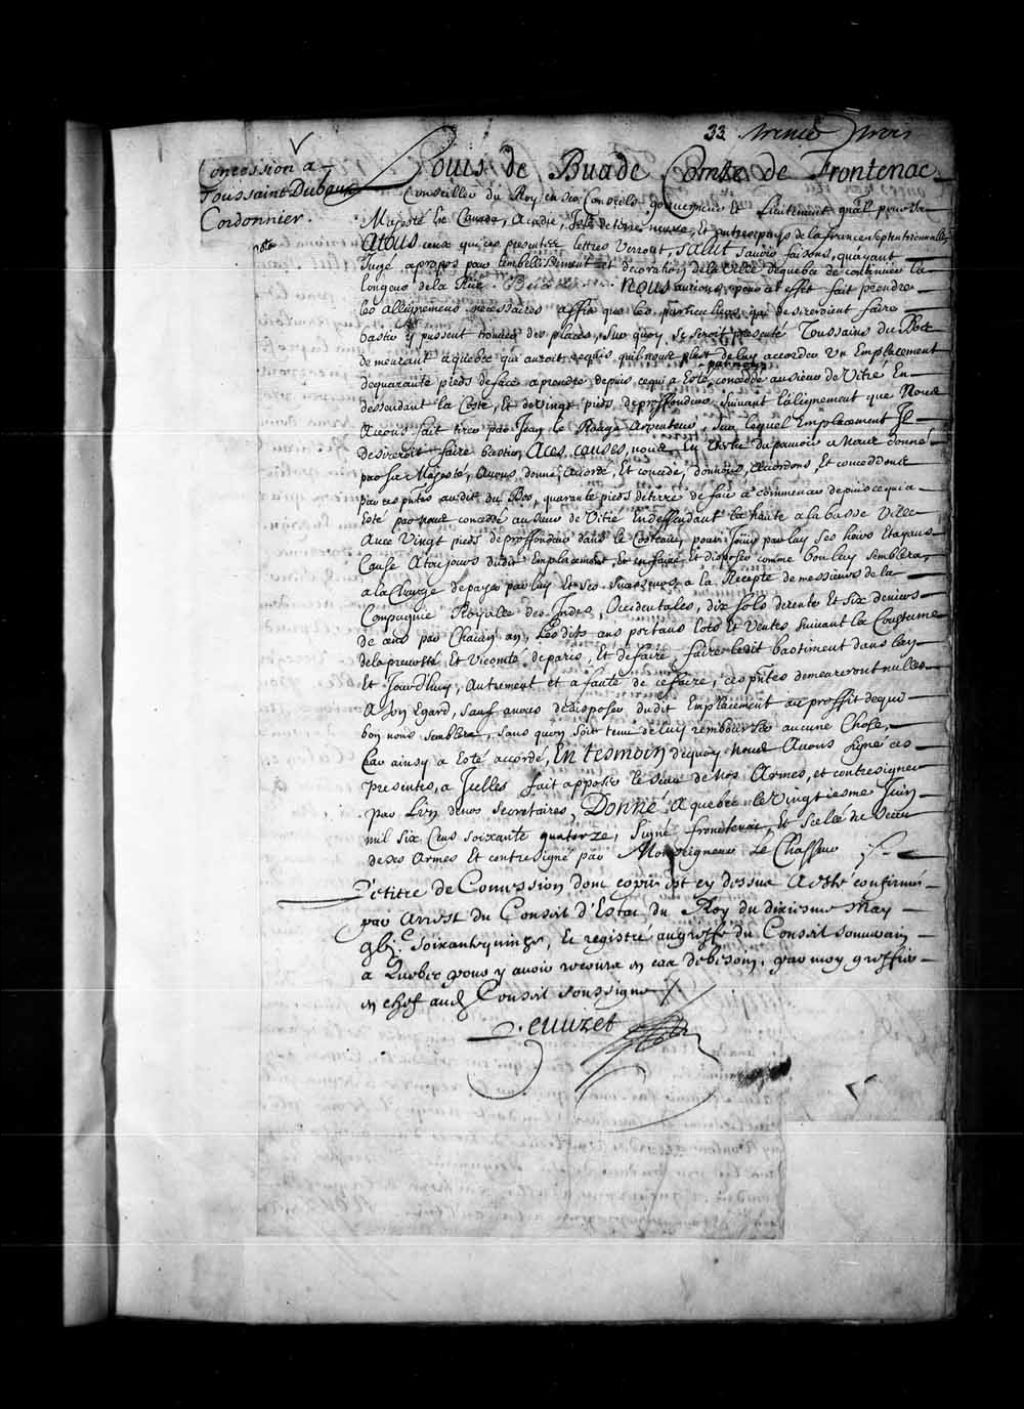 33 trente trois
Concession a
Toussaint Dubau
Cordonnier.
nota
Louis de Buade Comte de Frontenac
Conseiller du Roy en ses Conseils gouverneur et Lieutenant gnãl pour sa
Majesté en Canada, Acadie, Isle de terre neuve, et autres pays de la france septentrionnalle
Atous ceux qui ces presentes lettres verront, salut sauoir faisons, quayant
Jugé apropos pour lembellissement et decoration de la ville de quebec de continuer la
longeur de la Rüe nous aurions pour cet effet fait prendre
les allignemens necessaires affin que les particuliers qui desireroient faire
bastir y pussent trouuer des places, Sur quoy Se seroit presenté Toussains du Bos
demeurant a quebec qui auroit requis quil nous plust de luy accorder vn Emplacement
dequarante pieds deface aprendre depuis cequi a Esté concedde au sieur de Vitré En
dessendant la Coste, Et de vingt pieds de proffondeur suiuant lalignement que Nous
Auons fait tirer par Jean le Rouge Arpenteur, Sur lequel Emplacement Il
desireroit faire bastir, Aces causes, nous, En Vertu du pouuoir a Nous donné
par sa Majesté, Auons donné, accordé, Et concedé, donnons, accordons, Et conceddons
par ces pñtes audit du Bos, quarante pieds de terre de face a commencer depuis cequi a
Esté par nous conceddé au sieur de Vitré En dessendant la haute a la basse Ville
Auec Vingt pieds de proffondeur dans le Costeau, pour Jouir par luy ses hoirs Et ayans
Cause Atousjours dudit Emplacement, et en faire et disposer comme bon luy semblera,
a la Charge de payer par luy Et ses a la Recepte de messieurs de la
Compagnie Royalle des Indes, Occidentales, dix sols de rente Et Six deniers
de cens par Chacun an, Lesdits cens portans lots Et Ventes, Suiuant la Coustume
de la preuosté, Et Vicomté de paris, Et de faire faire ledit bastiment dans lan
Et Jourd'huy, Autrement et a faute de ce faire, ces pñtes demeureront nulles
A Son Egard, Sauf a nous de disposer dudit Emplacement au proffit de qui
bon nous semblera, sans quon soit tenu de luy rembourser aucune Chose,
Car ainsy a Esté accordé, En tesmoin dequoy Nous Auons signé ces
presentes, a Icelles fait apposer le sceau de nos Armes, et contresigner
par L'un de nos Secretaires, Donné A quebec le Vingtiesme Juin
mil six Cens soixante quatorze, Signé frontenac, Et Scelée du sceau
de ses Armes Et contresigné par Monseigneur Le Chasseur
Le titre de Concession dont copie est cy dessus a esté confirmé
par Arrest du Conseil d'Estat du Roy du dixiesme May
soixante quinze, Et registré au greffe du Conseil souuerain
a Quebec pour y auoir recours en cas de besoin, par moy greffier
en chef aud Conseil soussigné
Peuuret